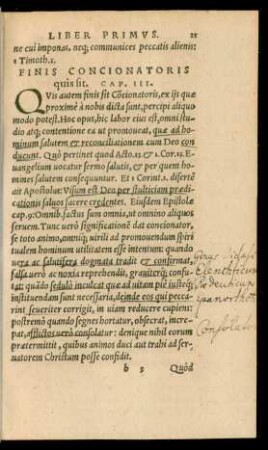 LIBER PRIMVS. 21
ne cui imponas, neq; communices peccatis alienis:
1 Timoth. 5.
FINIS CONCIONATORIS
quis sit. CAP. III.
QVis autem finis sit Cōcionatoris, ex ijs quæ
proximè à nobis dicta sunt, percipi aliquo
modo potest. Hoc opus, hic labor eius est, omni stu
dio atq; contentione ea ut promoueat, quæ ad ho
minum salutem et reconciliationem cum Deo con
ducunt. Quò pertinet quod Acto. & 1. Cor. Eu-
angelium uocatur sermo salutis, & per quem ho-
mines salutem consequuntur. Et 1 Corint. 1. disertè
ait Apostolus: Visum est Deo per stulticiam prædi-
cationis saluos facere credentes. Eiusdem Epistolæ
cap. 9: Omnib. factus sum omnia, ut omnino aliquos
seruem. Tunc uerò significatione dat concionator,
se toto animo, omniq; uirili ad promouendam spiri
tualem hominum utilitatem esse intentum: quando
uera ac salutifera dogmata tradit & confirmat,
falsa uerò ac noxia reprehendit, grauiterq; confu-
tat: quādo sedulò inculcat quæ ad uitam piè iusteq;
instituendam sunt necessaria, deinde eos qui pecca-
rint seueriter corrigit, in uiam reducere cupiens:
postremò quando segnes hortatur, obsecrat, incre-
pat, afflictos uerò consolatur: denique nihil eorum
prætermittit, quibus animos duci aut trahi ad ser-
uatorem Christum posse confidit.
b 3 Quòd
Genus
Elencticum
Consolato